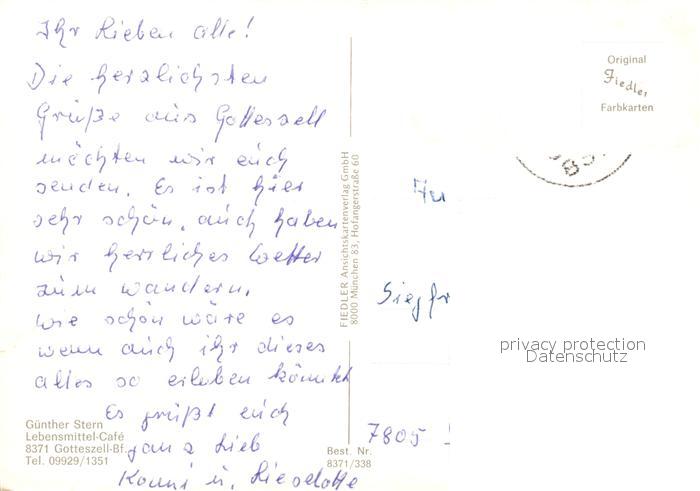 Ihr Lieben alle!
Die herzlichsten
Grüße aus Gotteszell
möchten wir euch
senden. Es ist hier
sehr schön, auch haben
wir herrliches Wetter
zum wandern.
Wie schön wäre es
wenn auch ihr dieses
alles so erleben könntet
Es grüßt euch
ganz lieb
Konni u. Lieselotte
Günther Stern
Lebensmittel-Café
8371 Gotteszell-Bf.
Tel. 09929/1351
FIEDLER Ansichtskartenverlag GmbH
8000 München 83, Hofangerstraße 60
Best. Nr.
8371/338
Original
Fiedler
Farbkarten
An
Siegfr
7805
privacy protection
Datenschutz